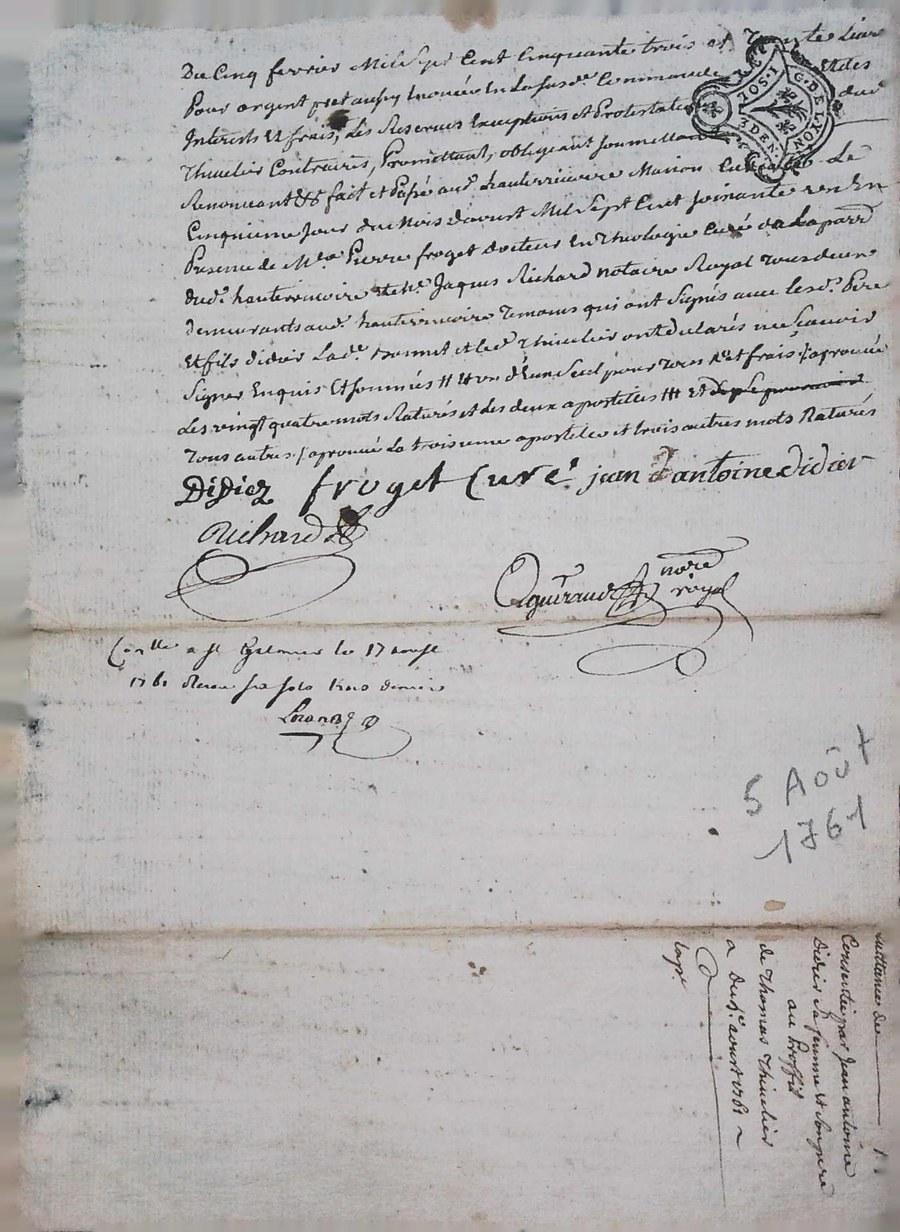 Du Cinq fevrier Mil Sept Cent Cinquante trois et Trente
Pour argent preté aussy Enoncée En La susd.e Commande et des
Interets et frais, Les Reserves Exceptions et Protestations dud
Thiuelier Contraires, Promettant, obligeant soumettant
Renonceant &c fait et Passé aud. hauterivoire Maison Curiale Le
Cinquieme Jour du Mois d'aoust Mil Sept Cent soixante & un En
Presence de Mre Pierre froget docteur En Theologie Curé de La parr.
dud. hauterivoire et Me. Jaques Richard notaire Royal Tous deux
demeurants aud. hauterivoire Temoins qui ont Signés avec Lesd. Pere
Et fils didier Lad.e et led. Thiuelier ont declarés ne sçavoir
Signer Enquis Et sommés d'un Seul pour Tous et frais / aprouvé
Les vingt quatre mots Raturés et Les deux apostilles Et
Tous autres / aprouvé La troisieme apostille et trois autres mots Raturés
Didiez froget Curé jean antoine didier
Richard
notre
royal
a st galmier le 17 aoust
1761
G. DE LYON
3 DEN.
5 Août
1761
quittance de
Consentie par Jean antoine
Didier Sa femme et Son pere
au Proffit
de Thomas Thiuelier
a du 5e aoust 1761